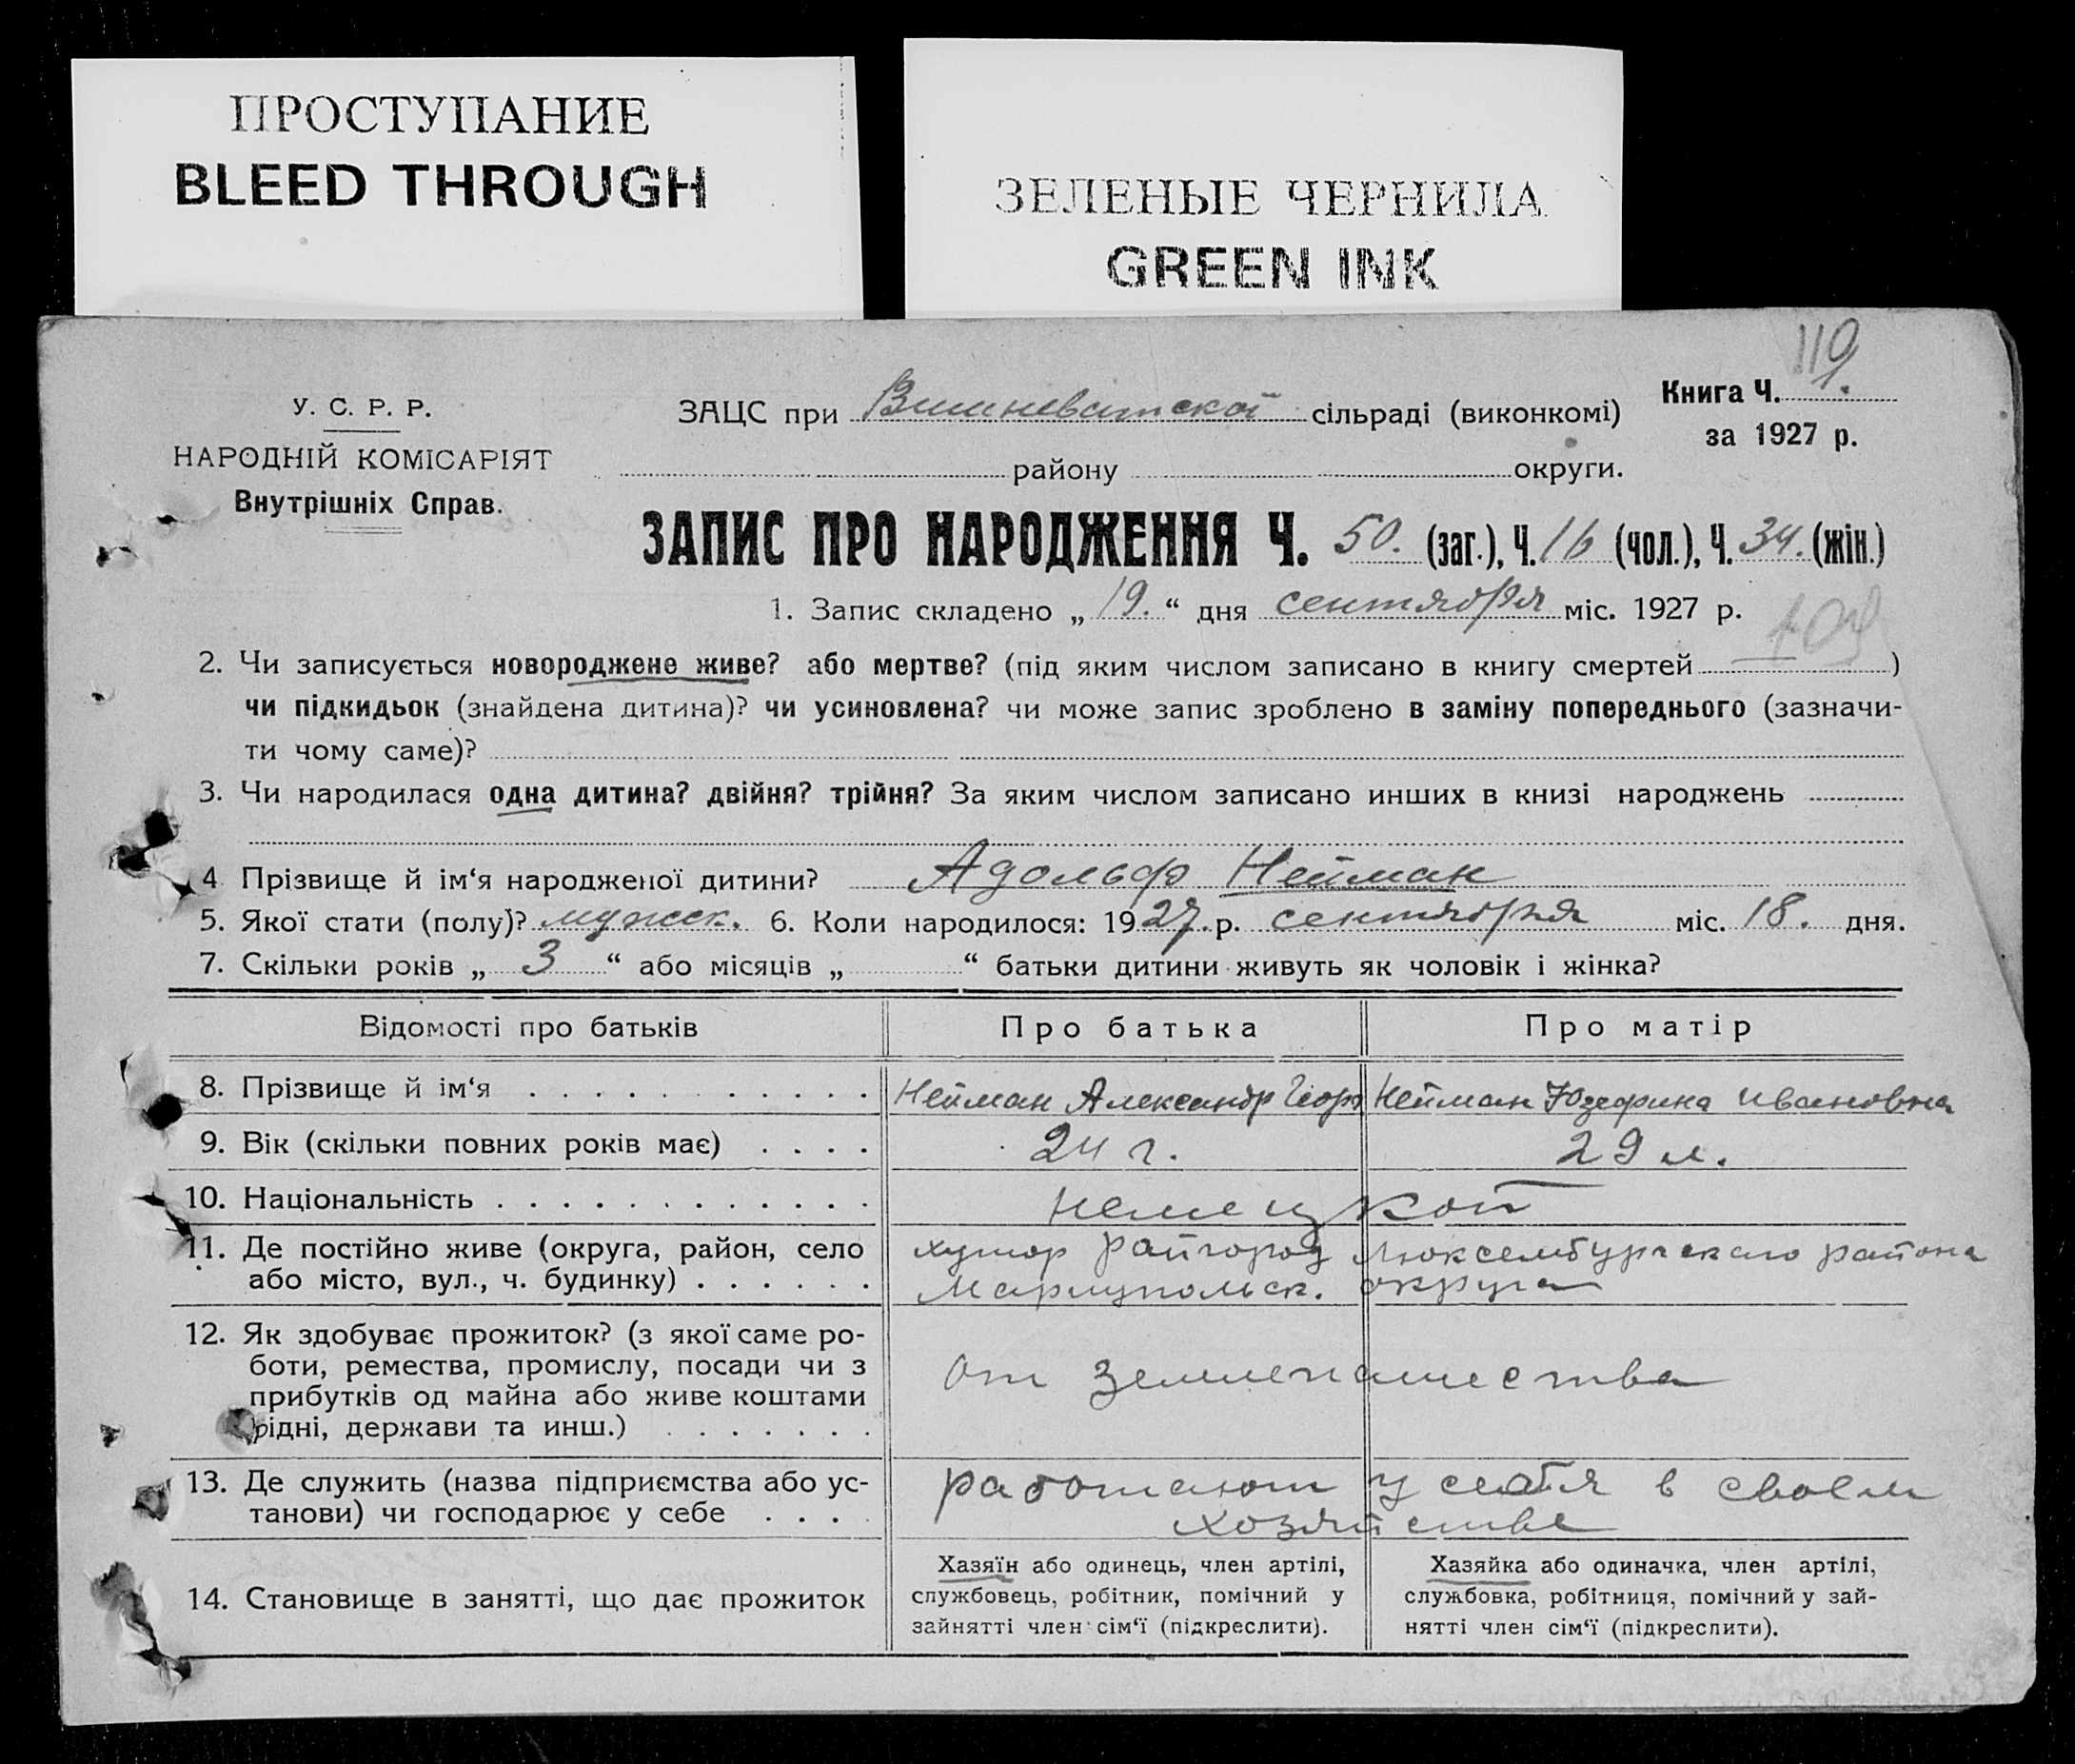 ПРОСТУПАНИЕ
BLEED THROUGH
ЗЕЛЕНЫЕ ЧЕРНИЛА
GREEN INK
119.
У. С. Р. Р.
НАРОДНІЙ КОМІСАРІЯТ
Внутрішніх Справ.
ЗАЦС при Вишневатской сільраді (виконкомі)
району округи.
Книга Ч.
за 1927 р.
ЗАПИС ПРО НАРОДЖЕННЯ Ч. 50. (заг.), Ч. 16 (чол.), Ч. 34. (жін.)
1. Запис складено „ 19. “ дня сентября міс. 1927 р.
2. Чи записується новороджене живе? або мертве? (під яким числом записано в книгу смертей )
чи підкидьок (знайдена дитина)? чи усиновлена? чи може запис зроблено в заміну попереднього (зазначи-
ти чому саме)?
3. Чи народилася одна дитина? двійня? трійня? За яким числом записано инших в книзі народжень
4 Прізвище й ім‘я народженої дитини? Адольф Нейман
5. Якої стати (полу)? мужск. 6. Коли народилося: 1927. р. сентября міс. 18. дня.
7. Скільки років „ 3 “ або місяців „ “ батьки дитини живуть як чоловік і жінка?
Відомості про батьків Про батька Про матір
8. Прізвище й ім‘я . . . . . . . . . . . . Нейман Александр Георг Нейман Юзефина Ивановна
9. Вік (скільки повних років має) . . . . 24 г. 29 л.
10. Національність . . . . . . . . . . . . . немецкой
11. Де постійно живе (округа, район, село хутор Райгород Люксембургского района
або місто, вул., ч. будинку) . . . . . . Мариупольск. округа
12. Як здобуває прожиток? (з якої саме ро-
боти, ремества, промислу, посади чи з
прибутків од майна або живе коштами
рідні, держави та инш.) . . . . . . .
от землепашества
13. Де служить (назва підприємства або ус-
танови) чи господарює у себе . . . .
работают у себя в своем
хозяйстве
14. Становище в занятті, що дає прожиток
Хазяїн або одинець, член артілі,
службовець, робітник, помічний у
зайнятті член сім‘ї (підкреслити).
Хазяйка або одиначка, член артілі,
службовка, робітниця, помічний у зай-
нятті член сім‘ї (підкреслити).